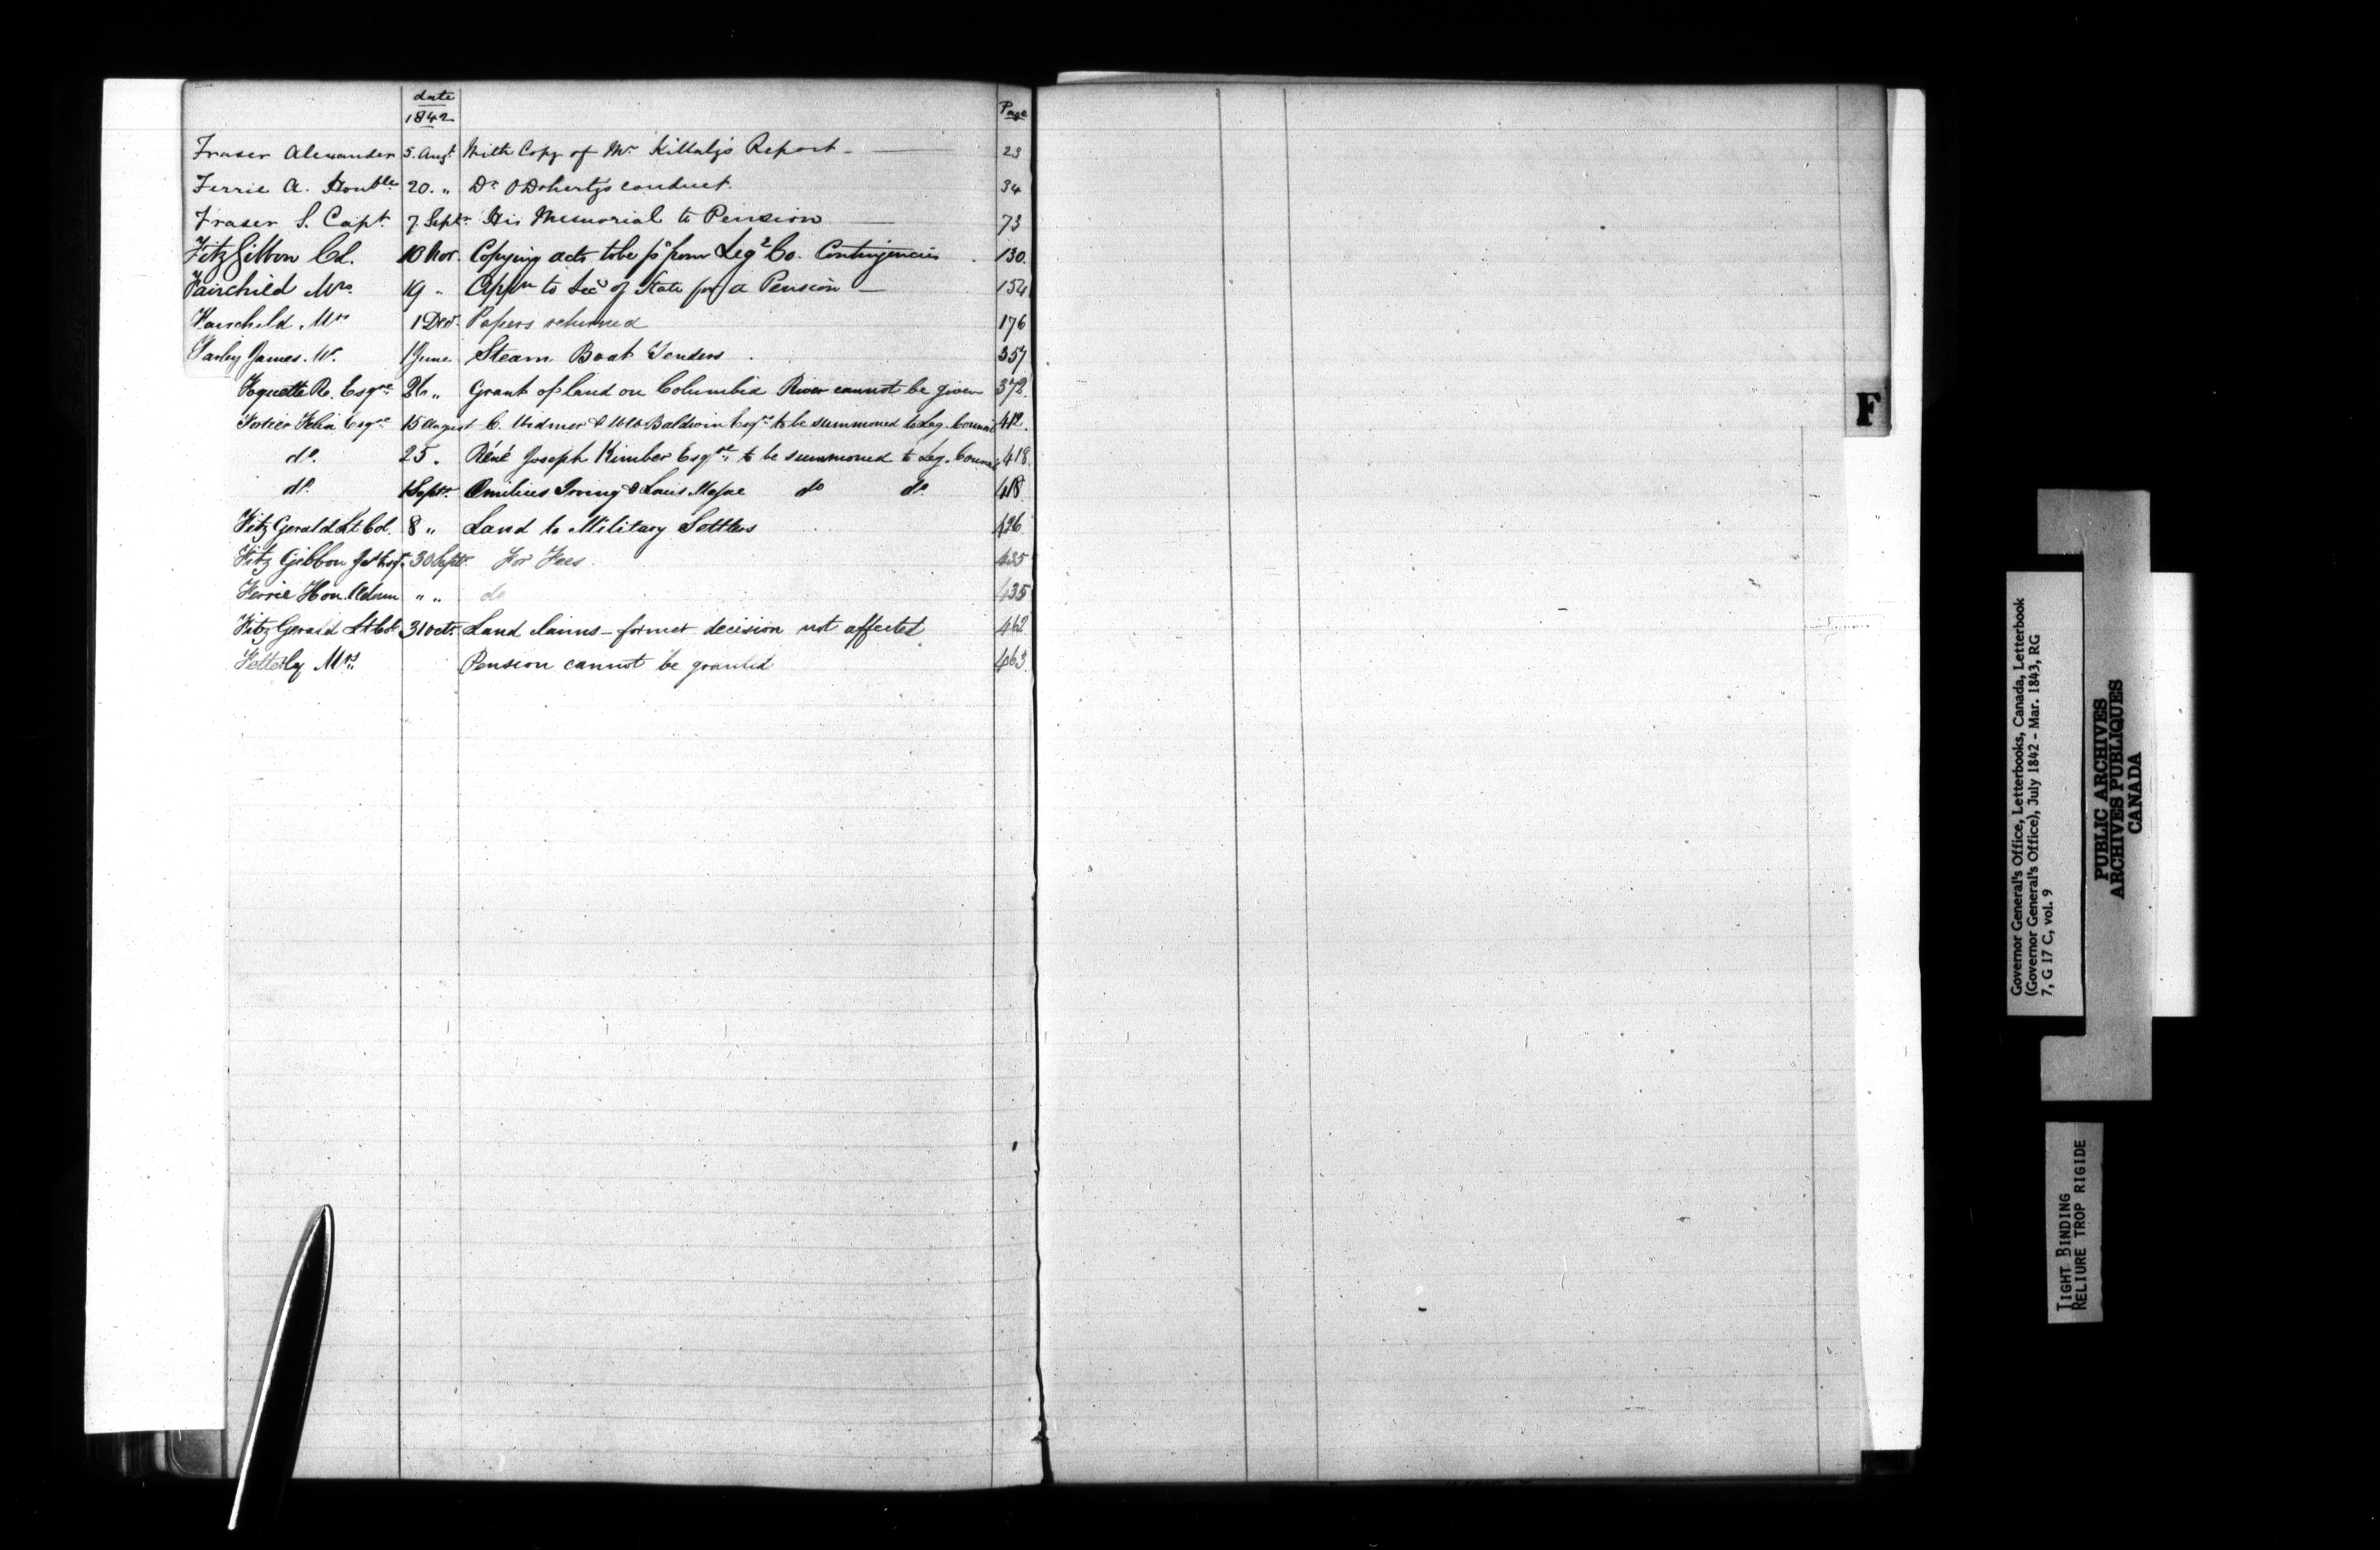 date
1842
Page
Fraser Alexander 5. Augt With Copy of Mr Killaly's Report - 23
Ferrie A. Honble 20. " Dr O'Doherty's conduct. 34
Fraser S. Capt 7. Septr His Memorial to Pension 73
FitzGibbon Col. 10 Nov. Copying acts to be pd from Leg. Co. Contingencies 130
Fairchild Mrs. 19 " Appn to Secy of State for a Pension - 154
Fairchild Mrs 1 Decr. Papers returned 176
Farley James. W. 1 June Steam Boat Tenders 357
R. Esqre " Grant of land on Columbia River cannot be given 372.
Fortier Felix Esqre 15 August C. Widmer & Baldwin Esqrs to be summoned to Leg. Council 412.
do. 25 " Réné Joseph Kimber Esqre to be summoned to Leg. Council 418.
do. 1 Septr. Emilius Irving & Louis do do. 418.
FitzGerald Lt Col. 8 " Land to Military Settlers 426
Fitz Gibbon 30 Septr For Fees. 435
Ferrie Hon. Adam " " do 435
FitzGerald Lt Col 31 Octr. Land claims - former decision not affected 462
Fetterly Mrs. Pension cannot be granted 463.
F
Governor General's Office, Letterbooks, Canada, Letterbook
(Governor General's Office), July 1842 - Mar. 1843, RG
7, G 17 C, vol. 9
PUBLIC ARCHIVES
ARCHIVES PUBLIQUES
CANADA
TIGHT BINDING
RELIURE TROP RIGIDE